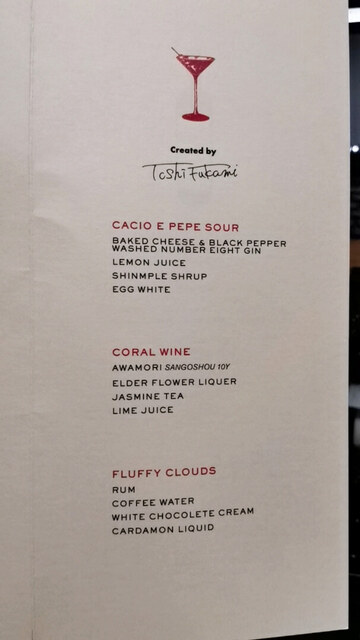 Created by
Toshi Fukami
CACIO E PEPE SOUR
BAKED CHEESE & BLACK PEPPER
WASHED NUMBER EIGHT GIN
LEMON JUICE
SHINMPLE SHRUP
EGG WHITE
CORAL WINE
AWAMORI SANGOSHOU 10Y
ELDER FLOWER LIQUER
JASMINE TEA
LIME JUICE
FLUFFY CLOUDS
RUM
COFFEE WATER
WHITE CHOCOLETE CREAM
CARDAMON LIQUID